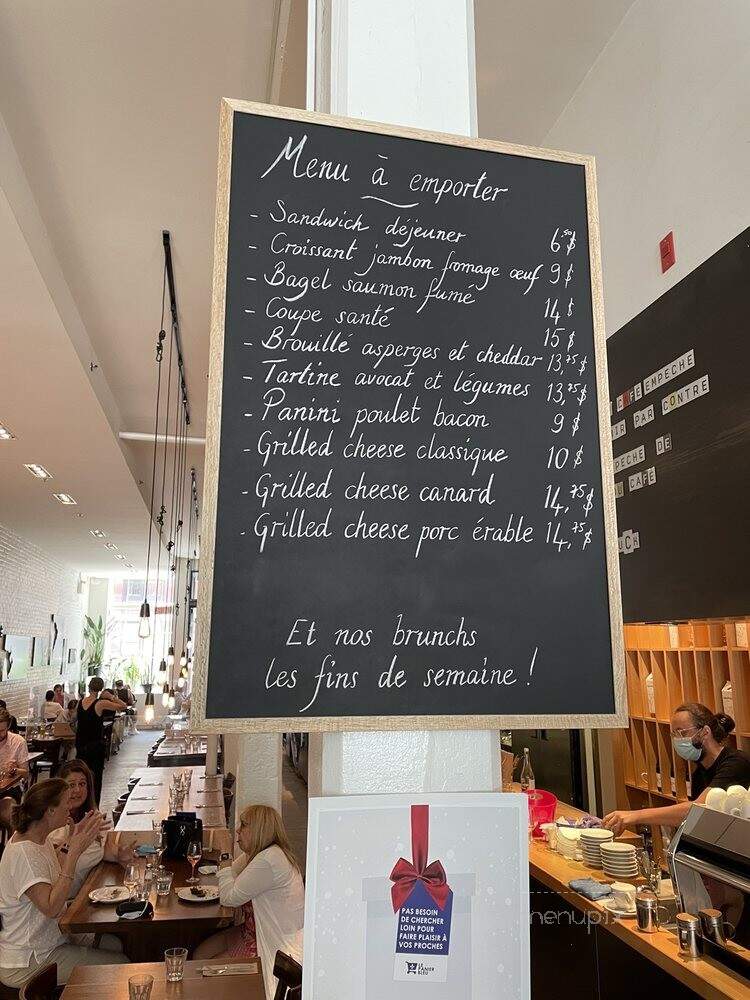 Menu à emporter
- Sandwich déjeuner 6,50$
- Croissant jambon fromage œuf 9$
- Bagel saumon fumé 14$
- Coupe santé 15$
- Brouillé asperges et cheddar 13,75$
- Tartine avocat et légumes 13,75$
- Panini poulet bacon 9$
- Grilled cheese classique 10$
- Grilled cheese canard 14,75$
- Grilled cheese porc érable 14,75$
Et nos brunchs
les fins de semaine !
CAFE EMPECHE
IR PAR CONTRE
PECHE DE
CAFE
PAS BESOIN
DE CHERCHER
LOIN POUR
FAIRE PLAISIR À
VOS PROCHES
LE
PANIER
BLEU
menupix